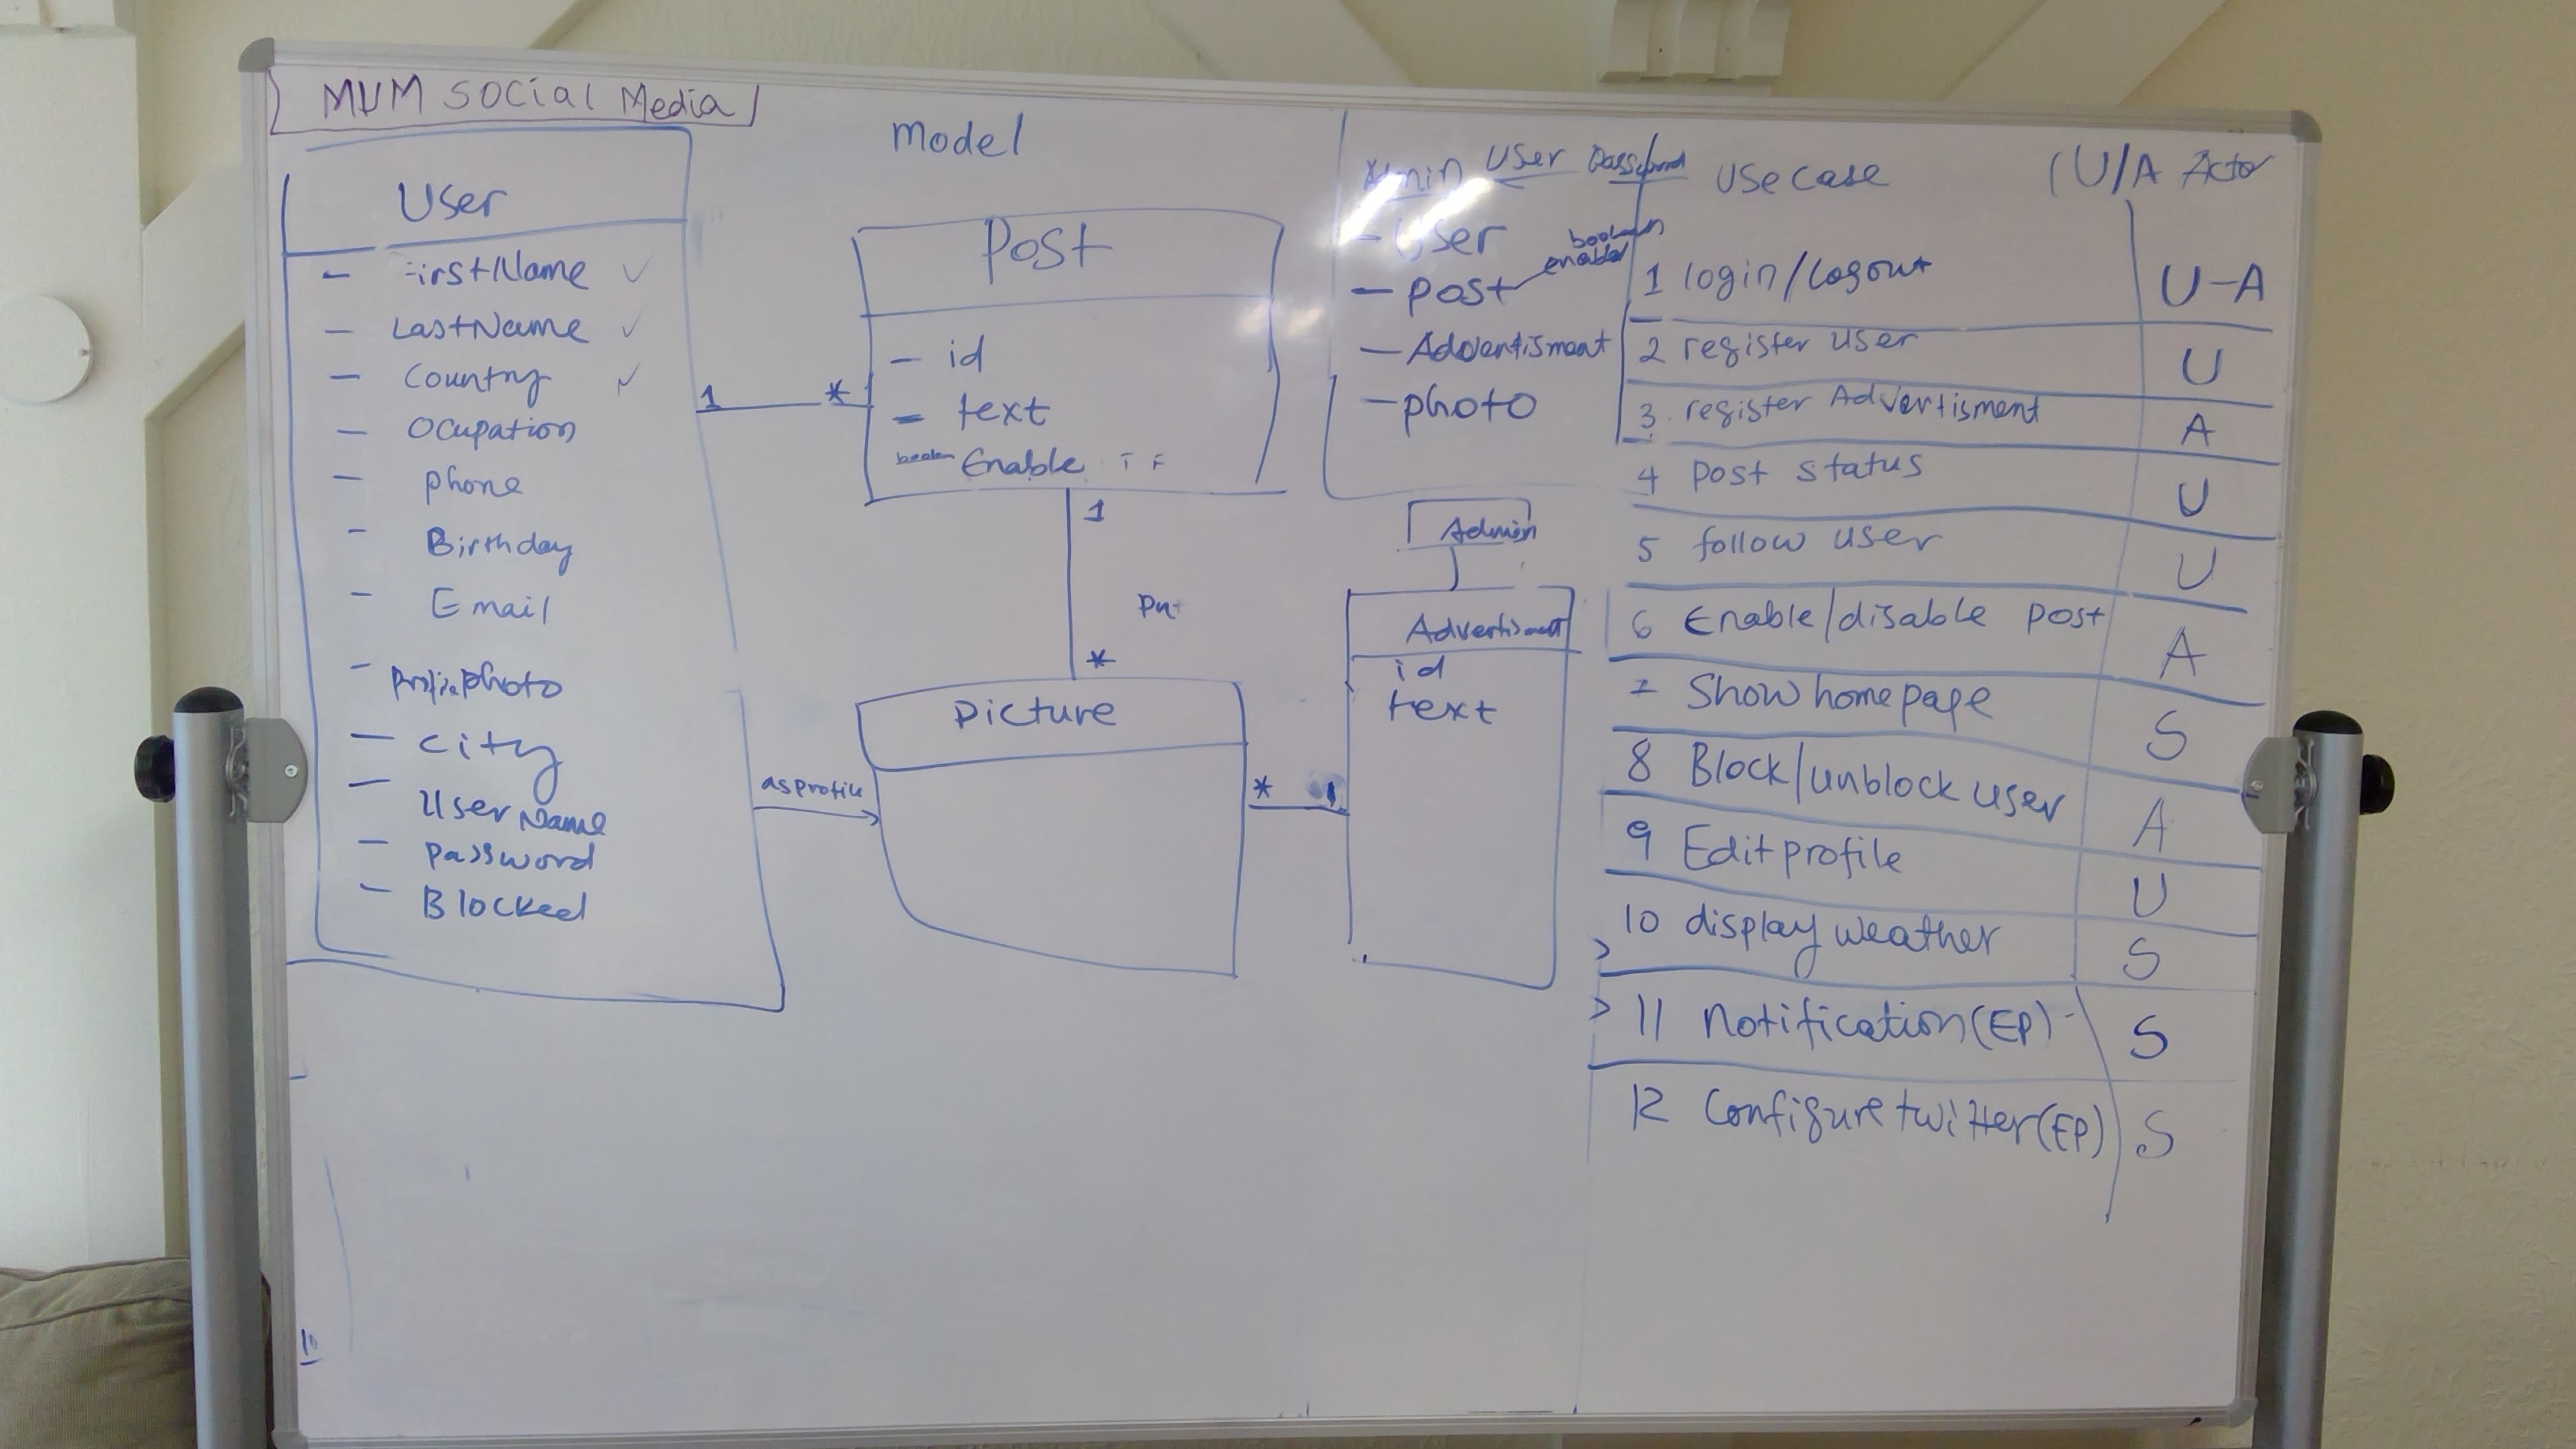 MUM Social Media
Model
User
- FirstName ✓
- LastName ✓
- Country ✓
- Ocupation
- phone
- Birthday
- Email
- Profilephoto
- City
- UserName
- password
- Blocked
1 *
Post
- id
- text
boolean Enable T F
1
*
Picture
as profile
* 1
Admin User
- User
- post
boolean
enable
- Advertisment
- photo
Admin
Advertisment
id
text
Use Case (U/A Actor
1 login/Logout U-A
2 register User U
3. register Advertisment A
4 post status U
5 follow user U
6 Enable/disable post A
7 Show homepage S
8 Block/unblock user A
9 Edit profile U
10 display weather S
11 Notification(EP) S
12 Configure twitter(EP) S